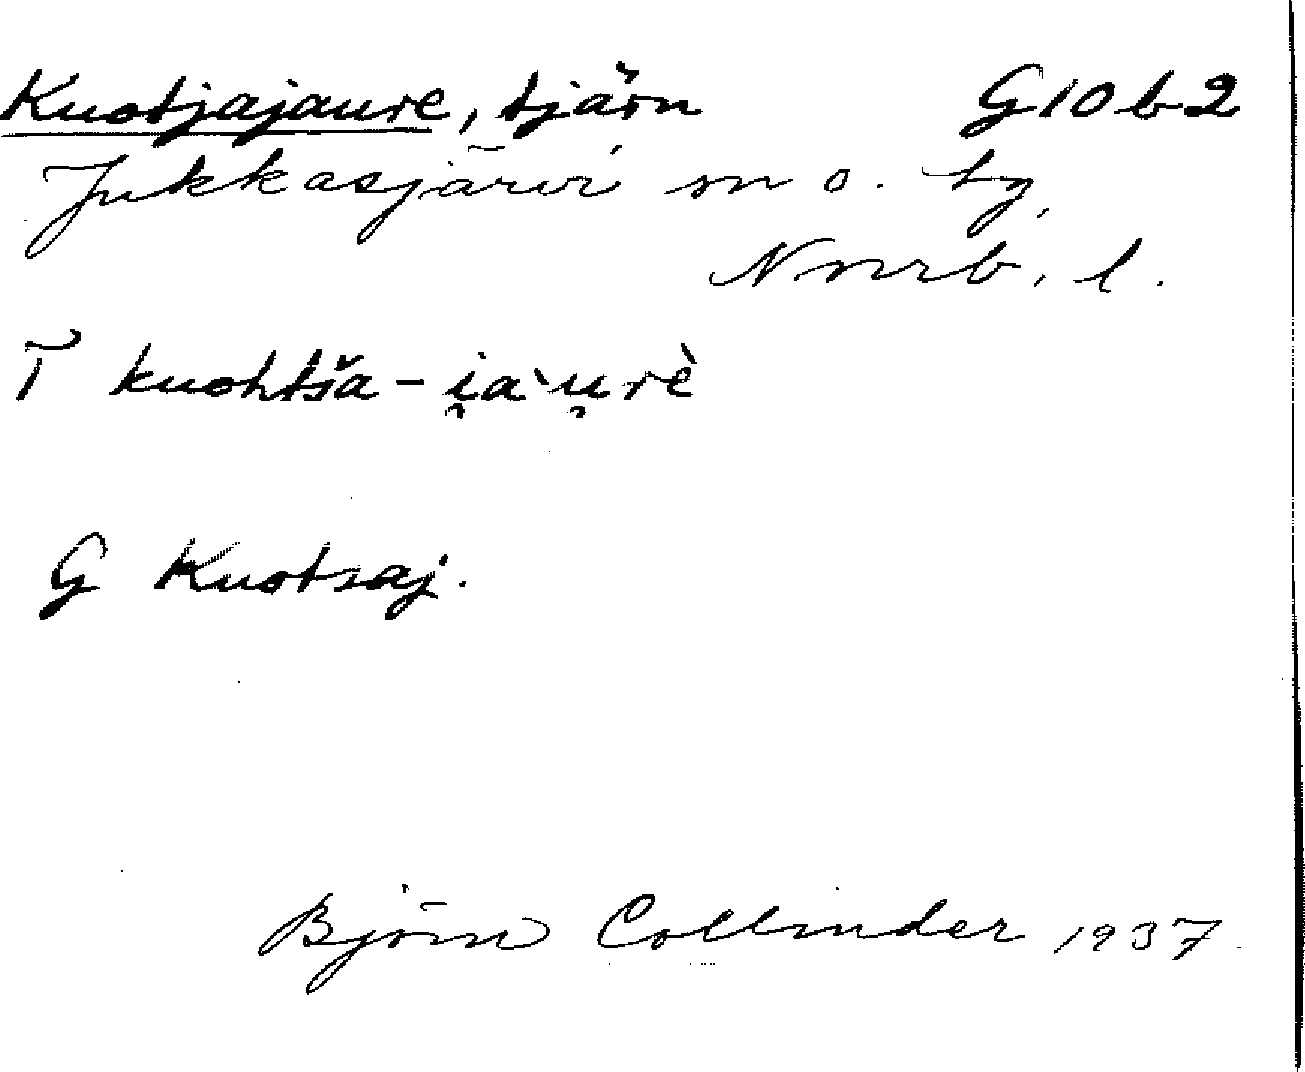 Kuotjajaure, tjärn G10b2
Jukkasjärvi sn o. tg,
Nnrb. l.
T kuohtša-i̯a`u̯rè
G Kuotsaj.
Björn Collinder 1937